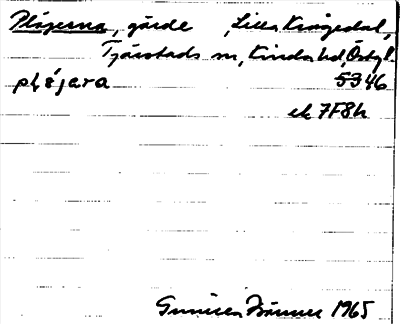 Plöjerna, gärde, Lilla Krågedal,
Tjärstads sn, Kinda hd, Östg l.
plöjara 5346
ek 7F8h
Gunnar Brånner 1965